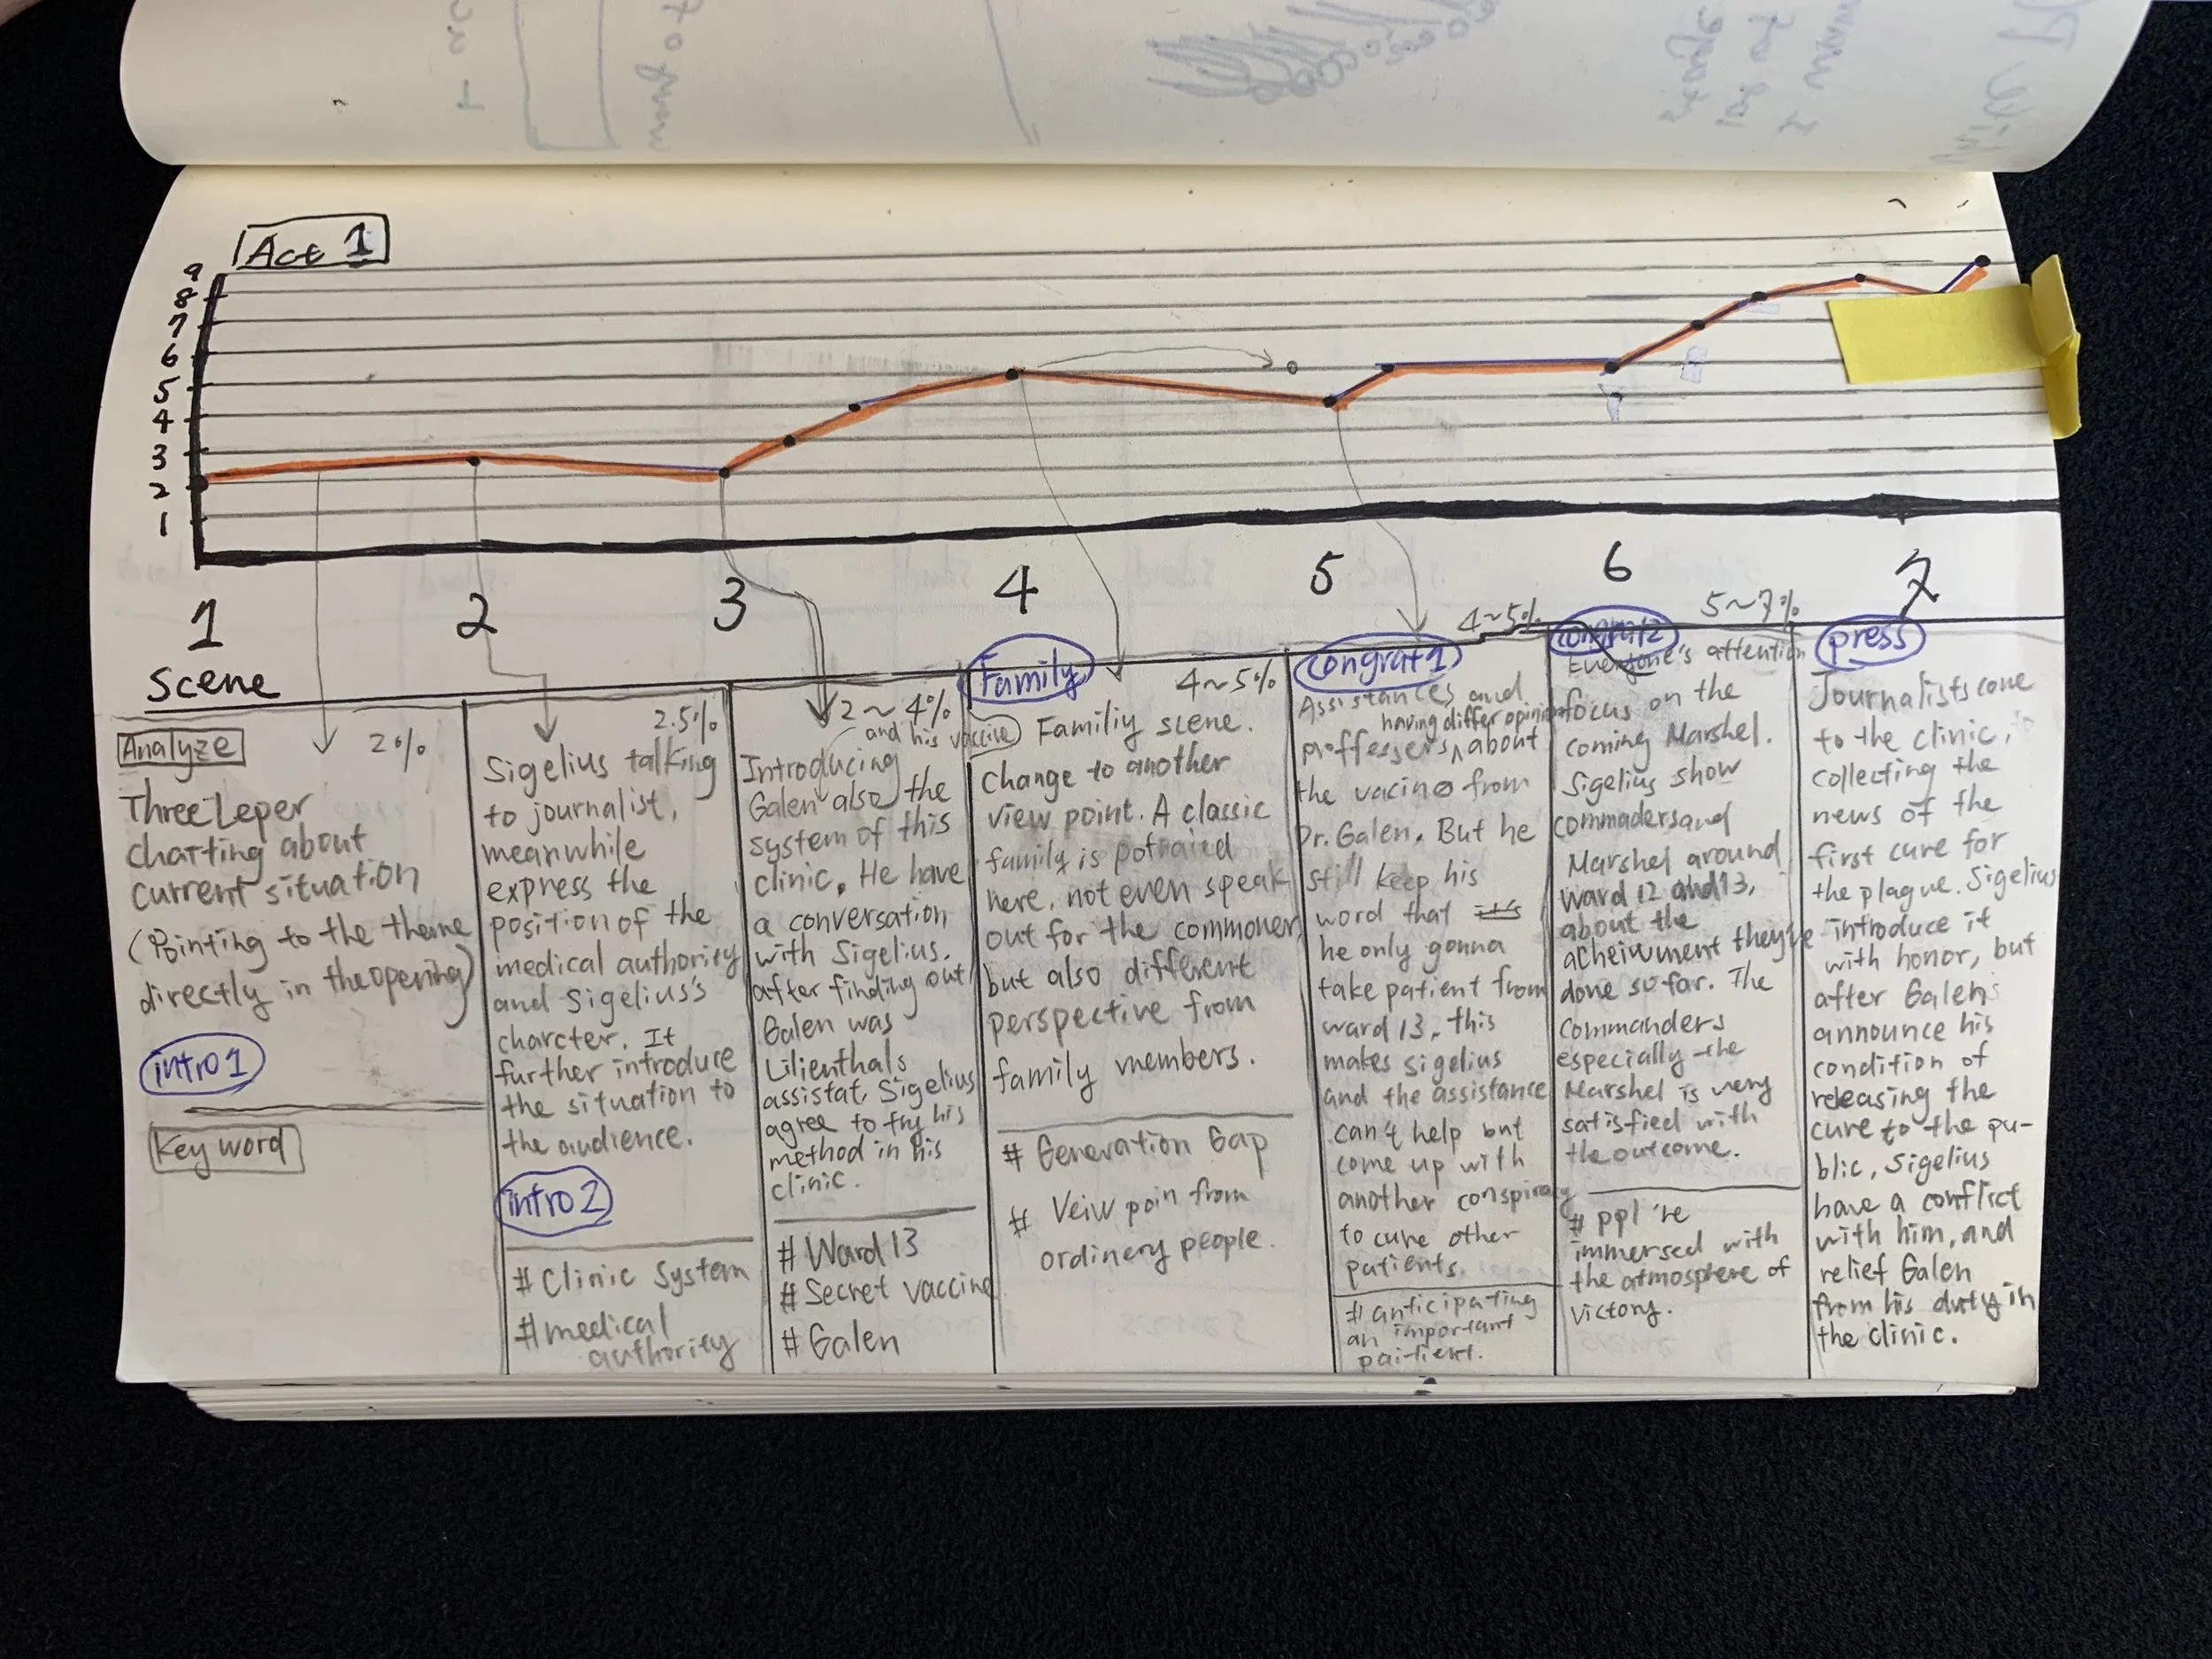 Act 1
9
8
7
6
5
4
3
2
1
1
2
3
4
5
6
7
Scene
Analyze
2%
Three Leper
chatting about
current situation
(Pointing to the theme
directly in the opening)
intro1
Key word
2.5%
Sigelius talking
to journalist,
meanwhile
express the
position of the
medical authority
and Sigelius's
charcter. It
further introduce
the situation to
the audience.
intro2
# Clinic System
# medical
authority
2 ~ 4%
and his vaccine
Introducing
Galen also the
system of this
clinic. He have
a conversation
with Sigelius.
after finding out
Galen was
Lilienthals
assistat, Sigelius
agree to try his
method in his
clinic.
# Ward 13
# Secret vaccine
# Galen
Family
4~5%
Familiy scene.
Change to another
view point. A classic
family is potraied
here, not even speak
out for the commoner,
but also different
perspective from
family members.
# Generation Gap
# Veiw poin from
ordinery people.
Congrat1
4~5%
Assistances and
having differ opinion
proffessers about
the vacine from
Dr. Galen. But he
still keep his
word that it's
he only gonna
take patient from
ward 13, this
makes sigelius
and the assistance
can't help but
come up with
another conspiracy
to cure other
patients.
# anticipating
an important
paitient.
congrat2
5~7%
Everyone's attention
focus on the
coming Marshel.
Sigelius show
commaders and
Marshel around
ward 12 and 13,
about the
acheivment they've
done so far. The
commanders
especially the
Marshel is very
satisfied with
the outcome.
# ppl 're
immersed with
the atmosphere of
victory.
press
Journalists come
to the clinic,
collecting the
news of the
first cure for
the plague. Sigelius
introduce it
with honor, but
after Galens
announce his
condition of
releasing the
cure to the pu-
blic, sigelius
have a conflict
with him, and
relief Galen
from his duty in
the clinic.